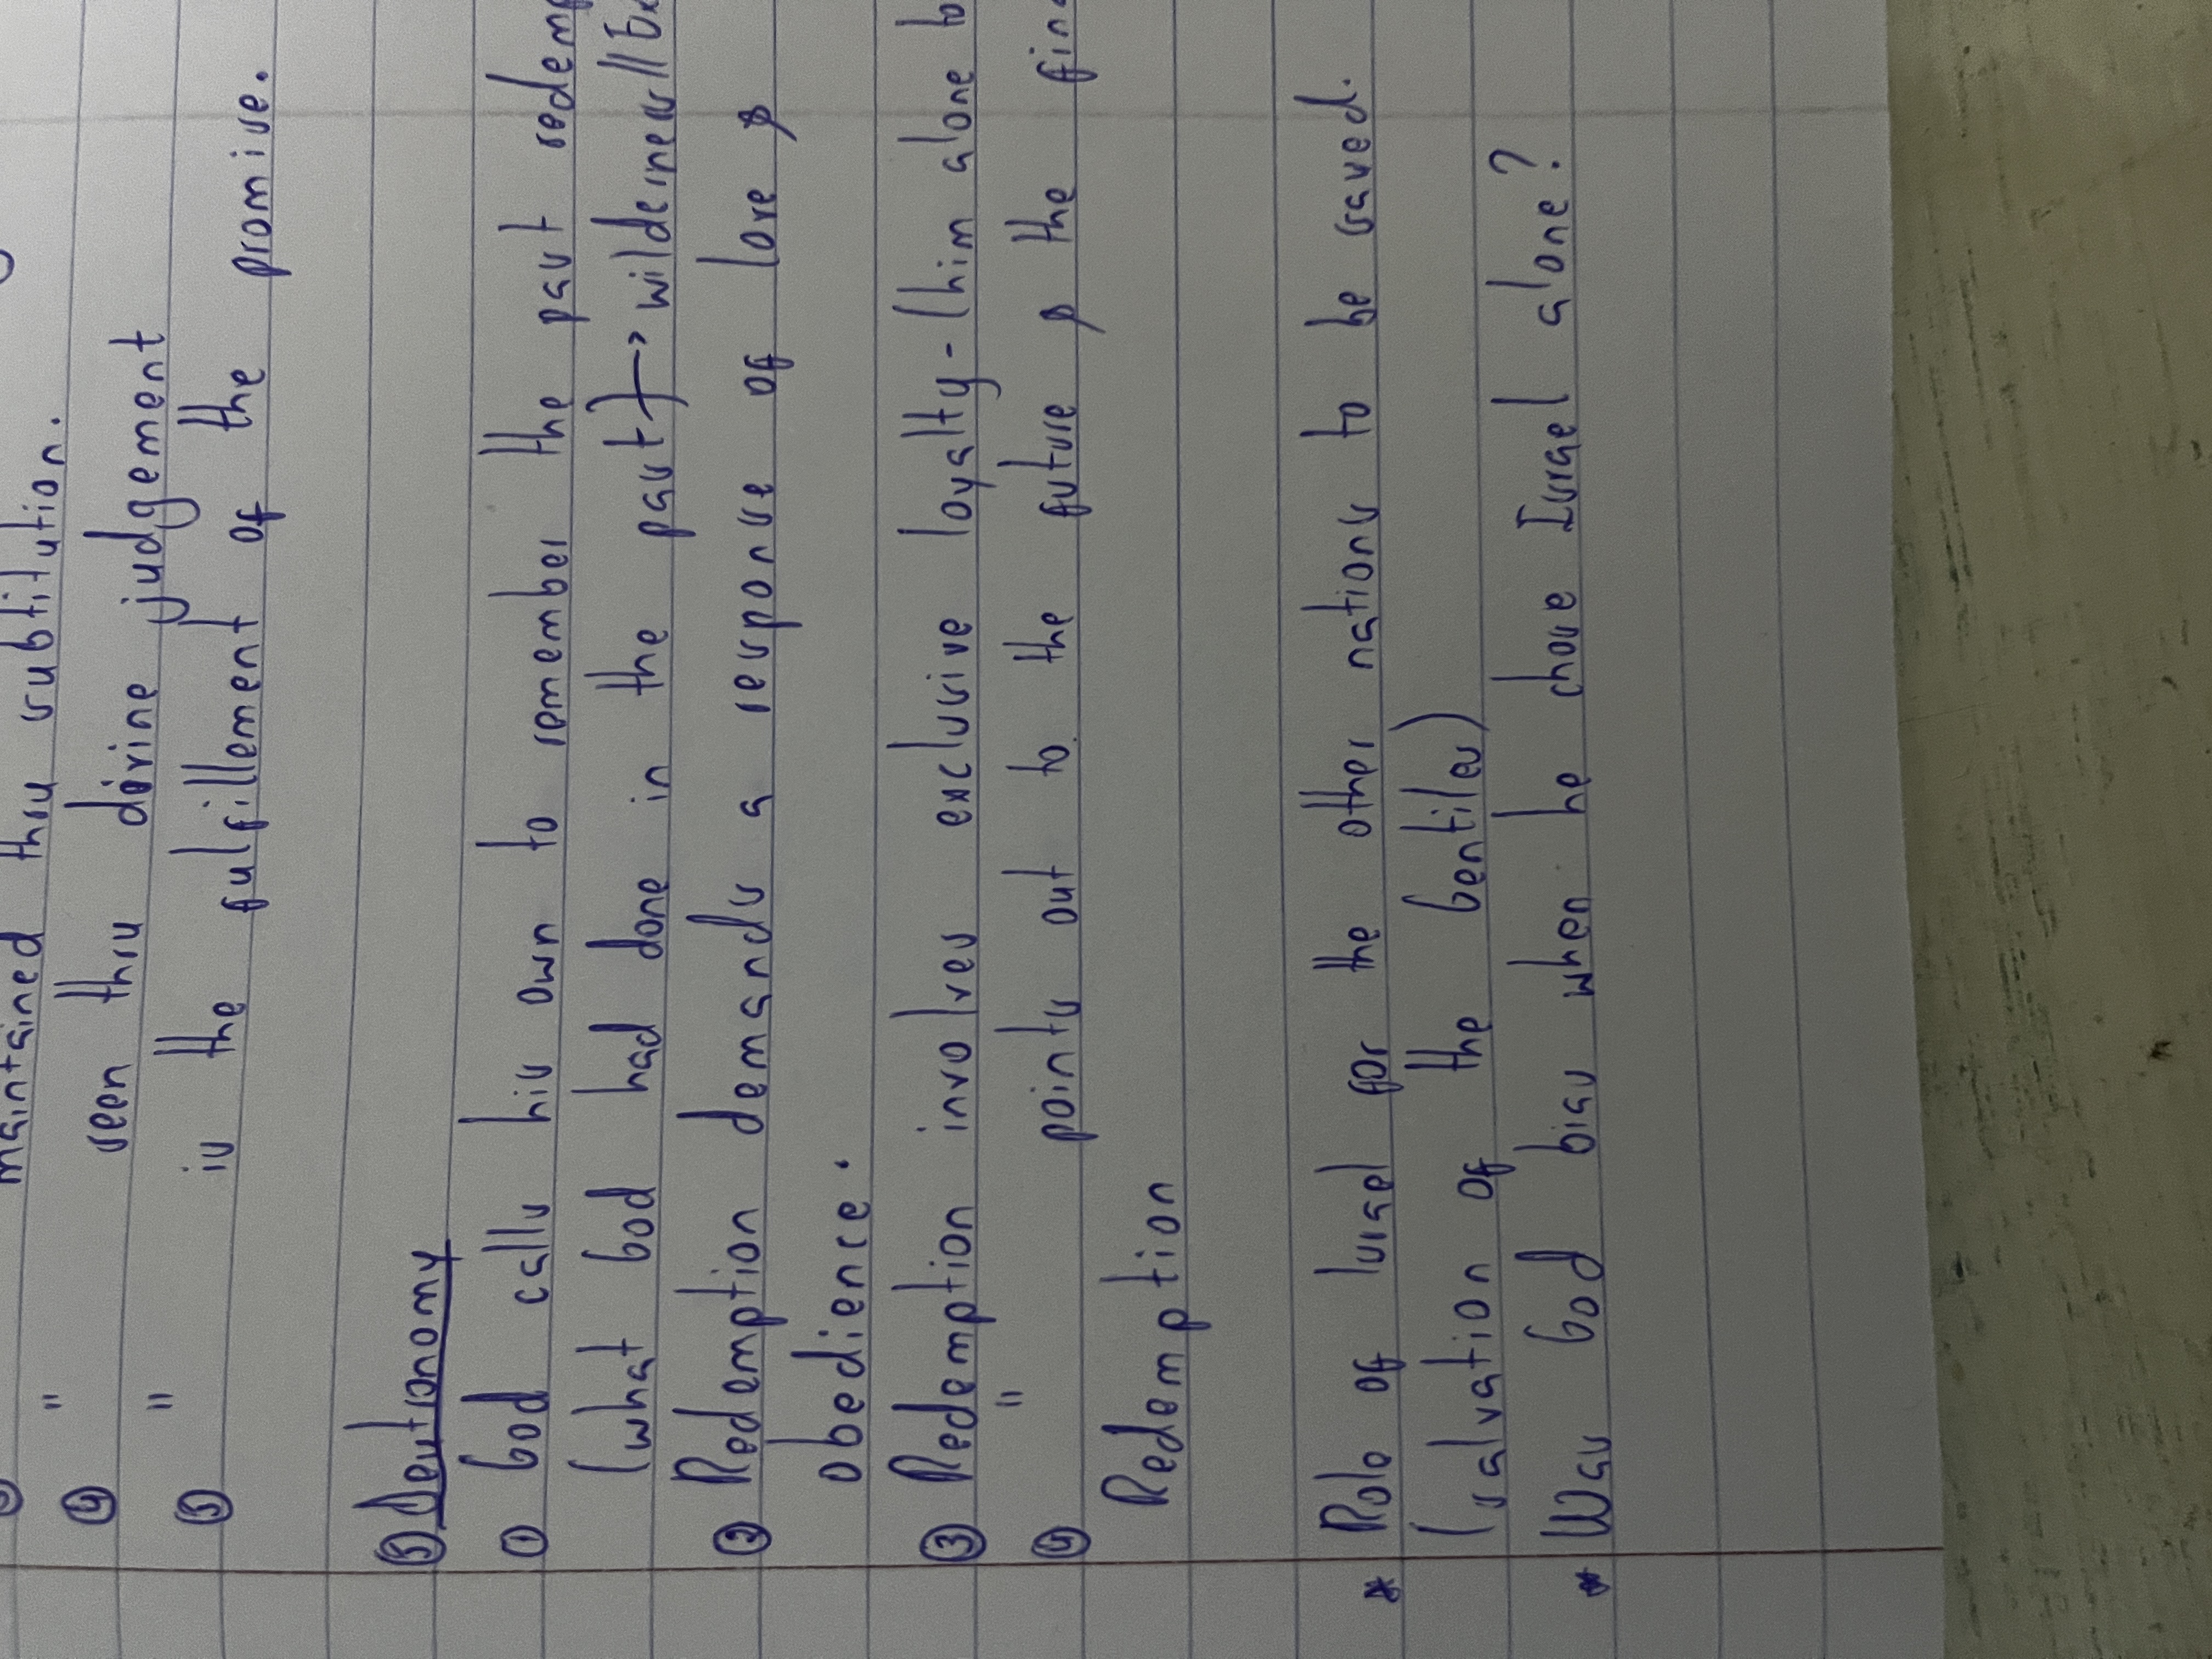 maintained thru subtitution.
④ " seen thru divine judgement
⑤ " is the fulfillement of the promise.
⑤ Deutronomy
① God calls his own to remember the past redemp
(what God had done in the past) → wilderness // Ex
② Redemption demands a response of love &
obedience.
③ Redemption involves exclusive loyalty - (him alone to
④ " points out to the future & the fina
Redemption
* Role of Israel for the other nations to be saved.
(salvation of the Gentiles)
* Was God bias when he chose Israel alone?